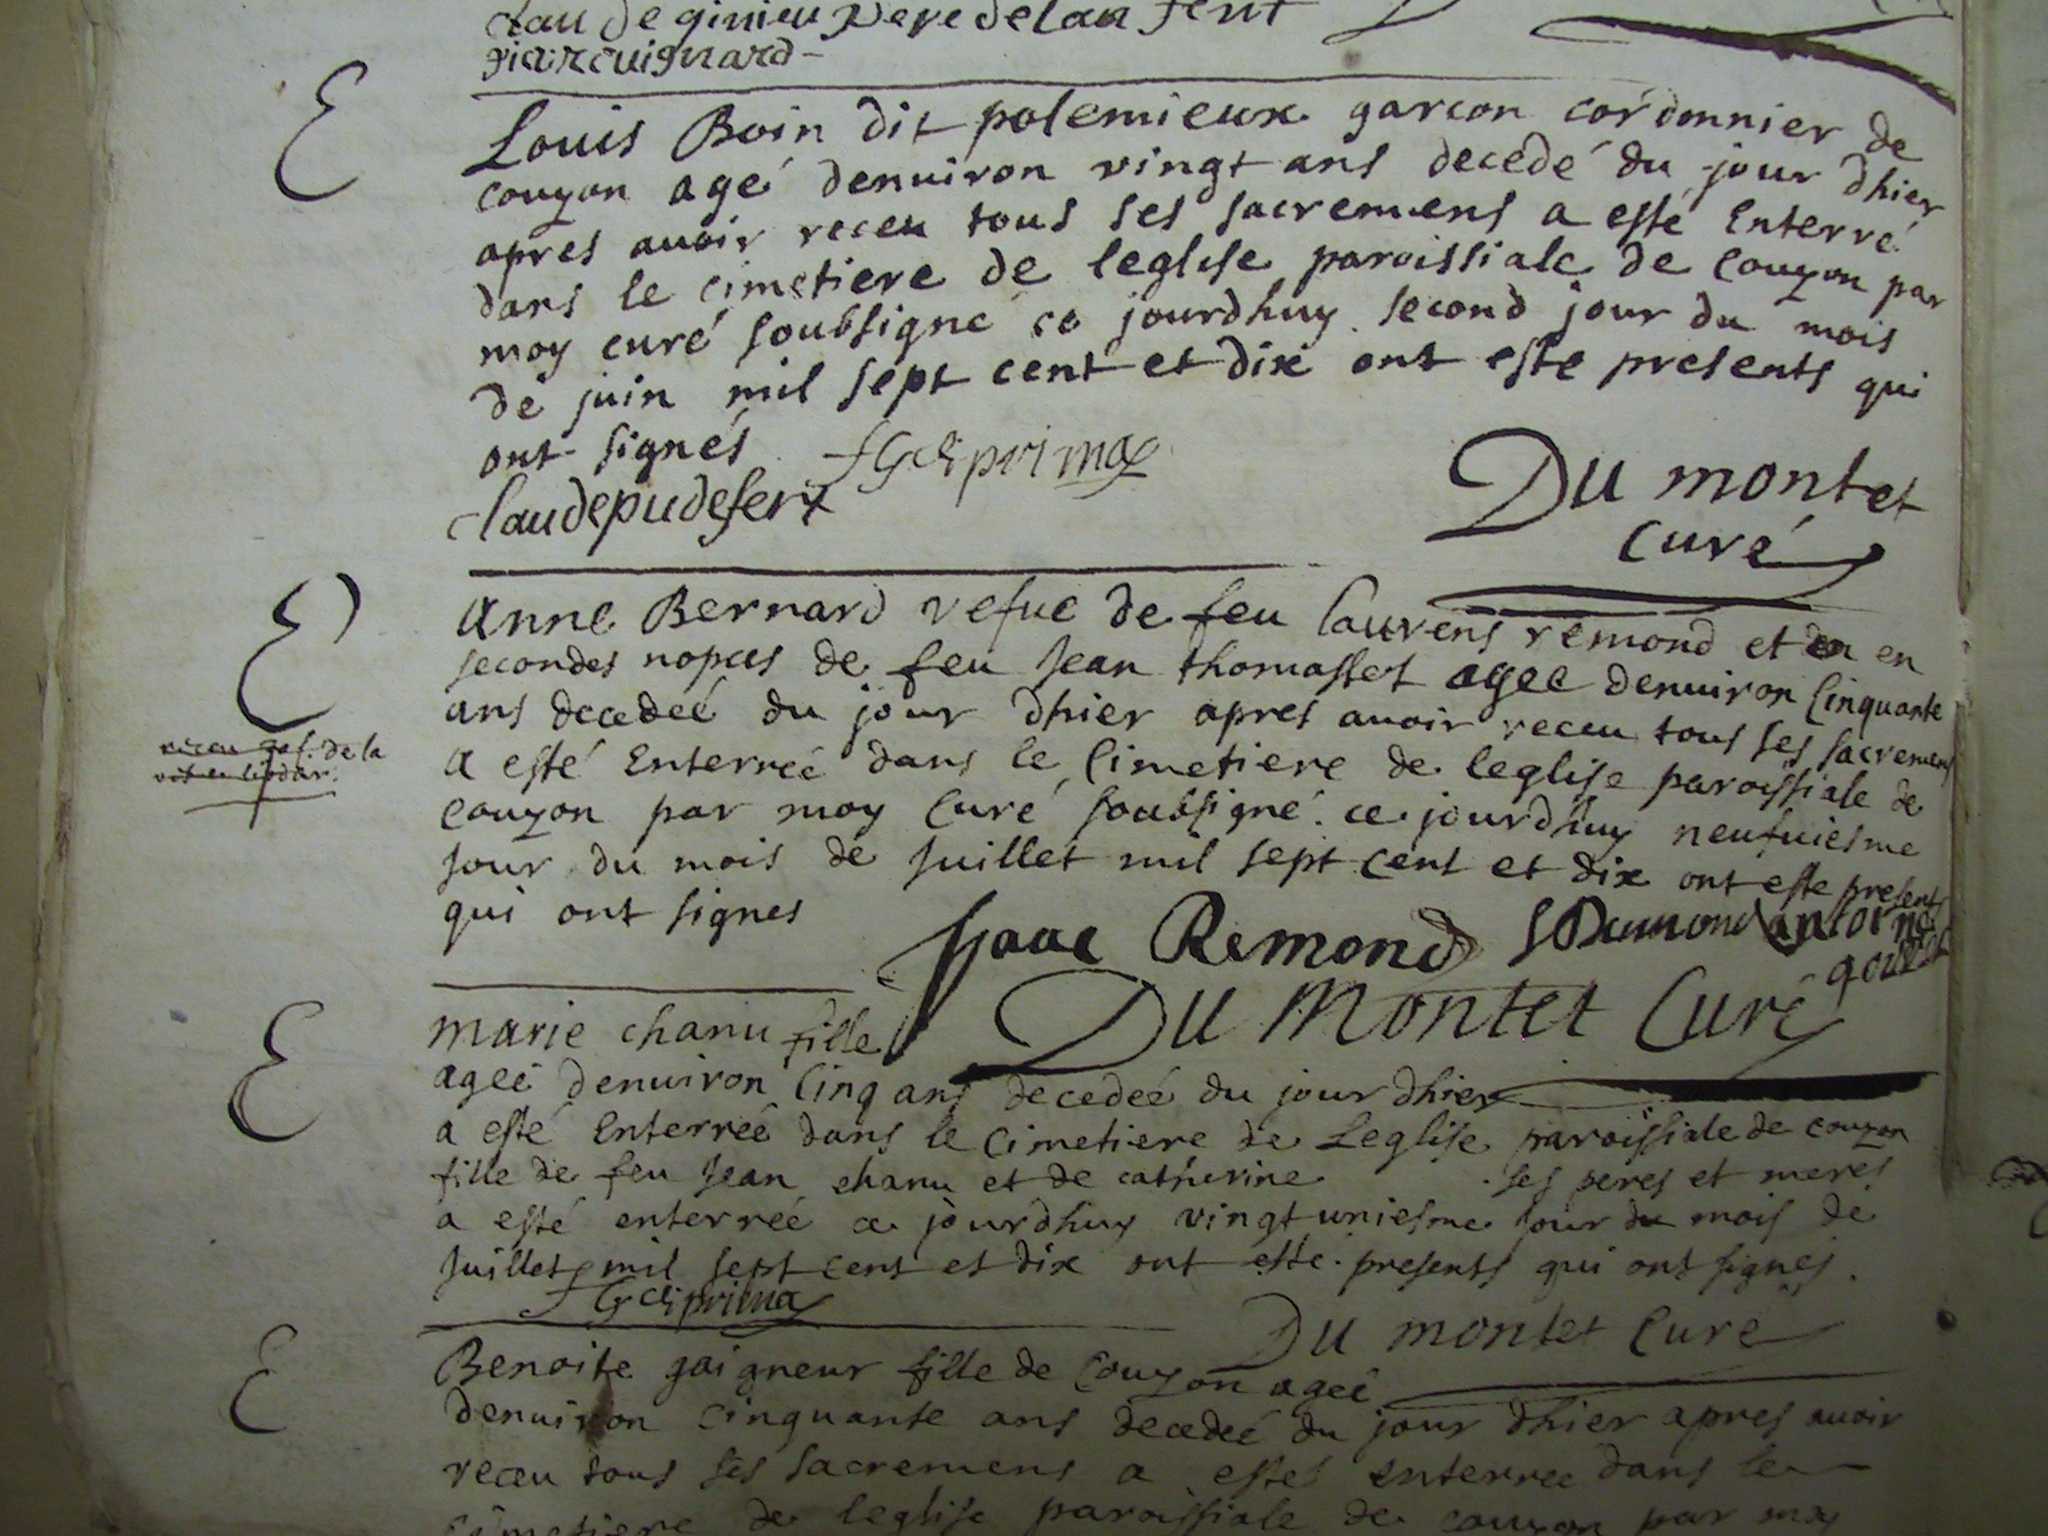 claude ginieu pere de lanfent
E
Louis Boin dit polemieux garcon cordonnier de
couzon agé denuiron vingt ans decedé du jour dhier
apres auoir receu tous ses sacremens a esté Enterré
dans le cimetiere de leglise paroissiale de couzon par
moy curé soubsigné ce jourdhuy second jour du mois
de juin mil sept cent et dix ont este presents qui
ont signés
claude pudefert
Du montet
curé
E
Anne Bernard vefue de feu laurens remond et en
secondes nopces de feu Jean thomasset ageé denuiron cinquante
ans decedeé du jour dhier apres auoir receu tous ses sacremens
a esté Enterreé dans le cimetiere de leglise paroissiale de
couzon par moy curé soubsigné ce jourdhuy neufuiesme
Jour du mois de Juillet mil sept cent et dix ont este present
qui ont signes
Isaac Remond antoine
Du Montet Curé
E
marie chanu fille
ageé denuiron cinq ans decedeé du jour dhier
a esté Enterreé dans le cimetiere de Leglise paroissiale de couzon
fille de feu Jean chanu et de catherine ses peres et meres
a esté enterreé ce jourdhuy vingt uniesme Jour du mois de
Juillet mil sept cent et dix ont este presents qui ont signes
Du montet curé
E
Benoite gaigneur fille de couzon ageé
denuiron cinquante ans decedeé du jour dhier apres auoir
receu tous ses sacremens a esté enterree dans le
cimetiere de leglise paroissiale de couzon par moy